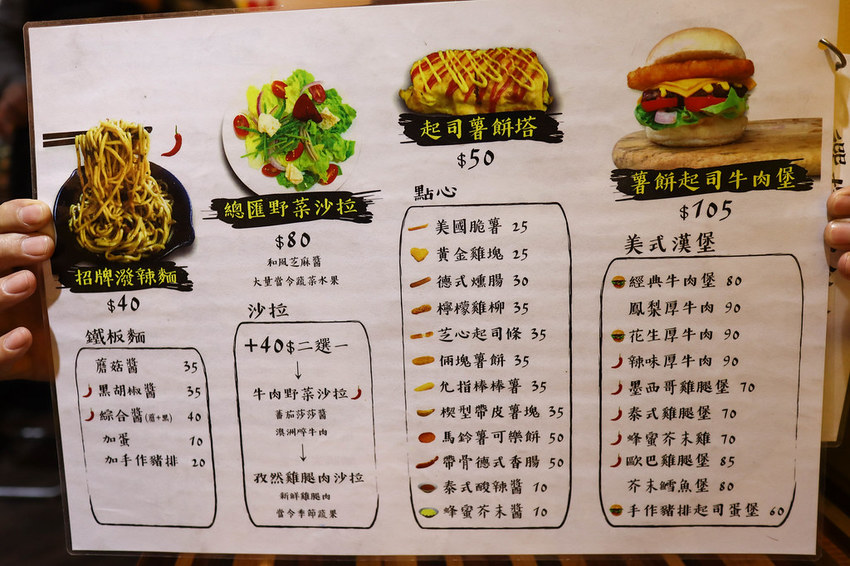 招牌潑辣麵
$40
鐵板麵
蘑菇醬 35
黑胡椒醬 35
綜合醬(菇+黑) 40
加蛋 10
加手作豬排 20
總匯野菜沙拉
$80
和風芝麻醬
大量當令蔬菜水果
沙拉
+40$二選一
牛肉野菜沙拉
番茄莎莎醬
澳洲啐牛肉
孜然雞腿肉沙拉
新鮮雞腿肉
當令季節蔬果
起司薯餅塔
$50
點心
美國脆薯 25
黃金雞塊 25
德式燻腸 30
檸檬雞柳 35
芝心起司條 35
倆塊薯餅 35
允指棒棒薯 35
楔型帶皮薯塊 35
馬鈴薯可樂餅 50
帶骨德式香腸 50
泰式酸辣醬 10
蜂蜜芥末醬 10
薯餅起司牛肉堡
$105
美式漢堡
經典牛肉堡 80
鳳梨厚牛肉 90
花生厚牛肉 90
辣味厚牛肉 90
墨西哥雞腿堡 70
泰式雞腿堡 70
蜂蜜芥末雞 70
歐巴雞腿堡 85
芥末鱈魚堡 80
手作豬排起司蛋堡 60